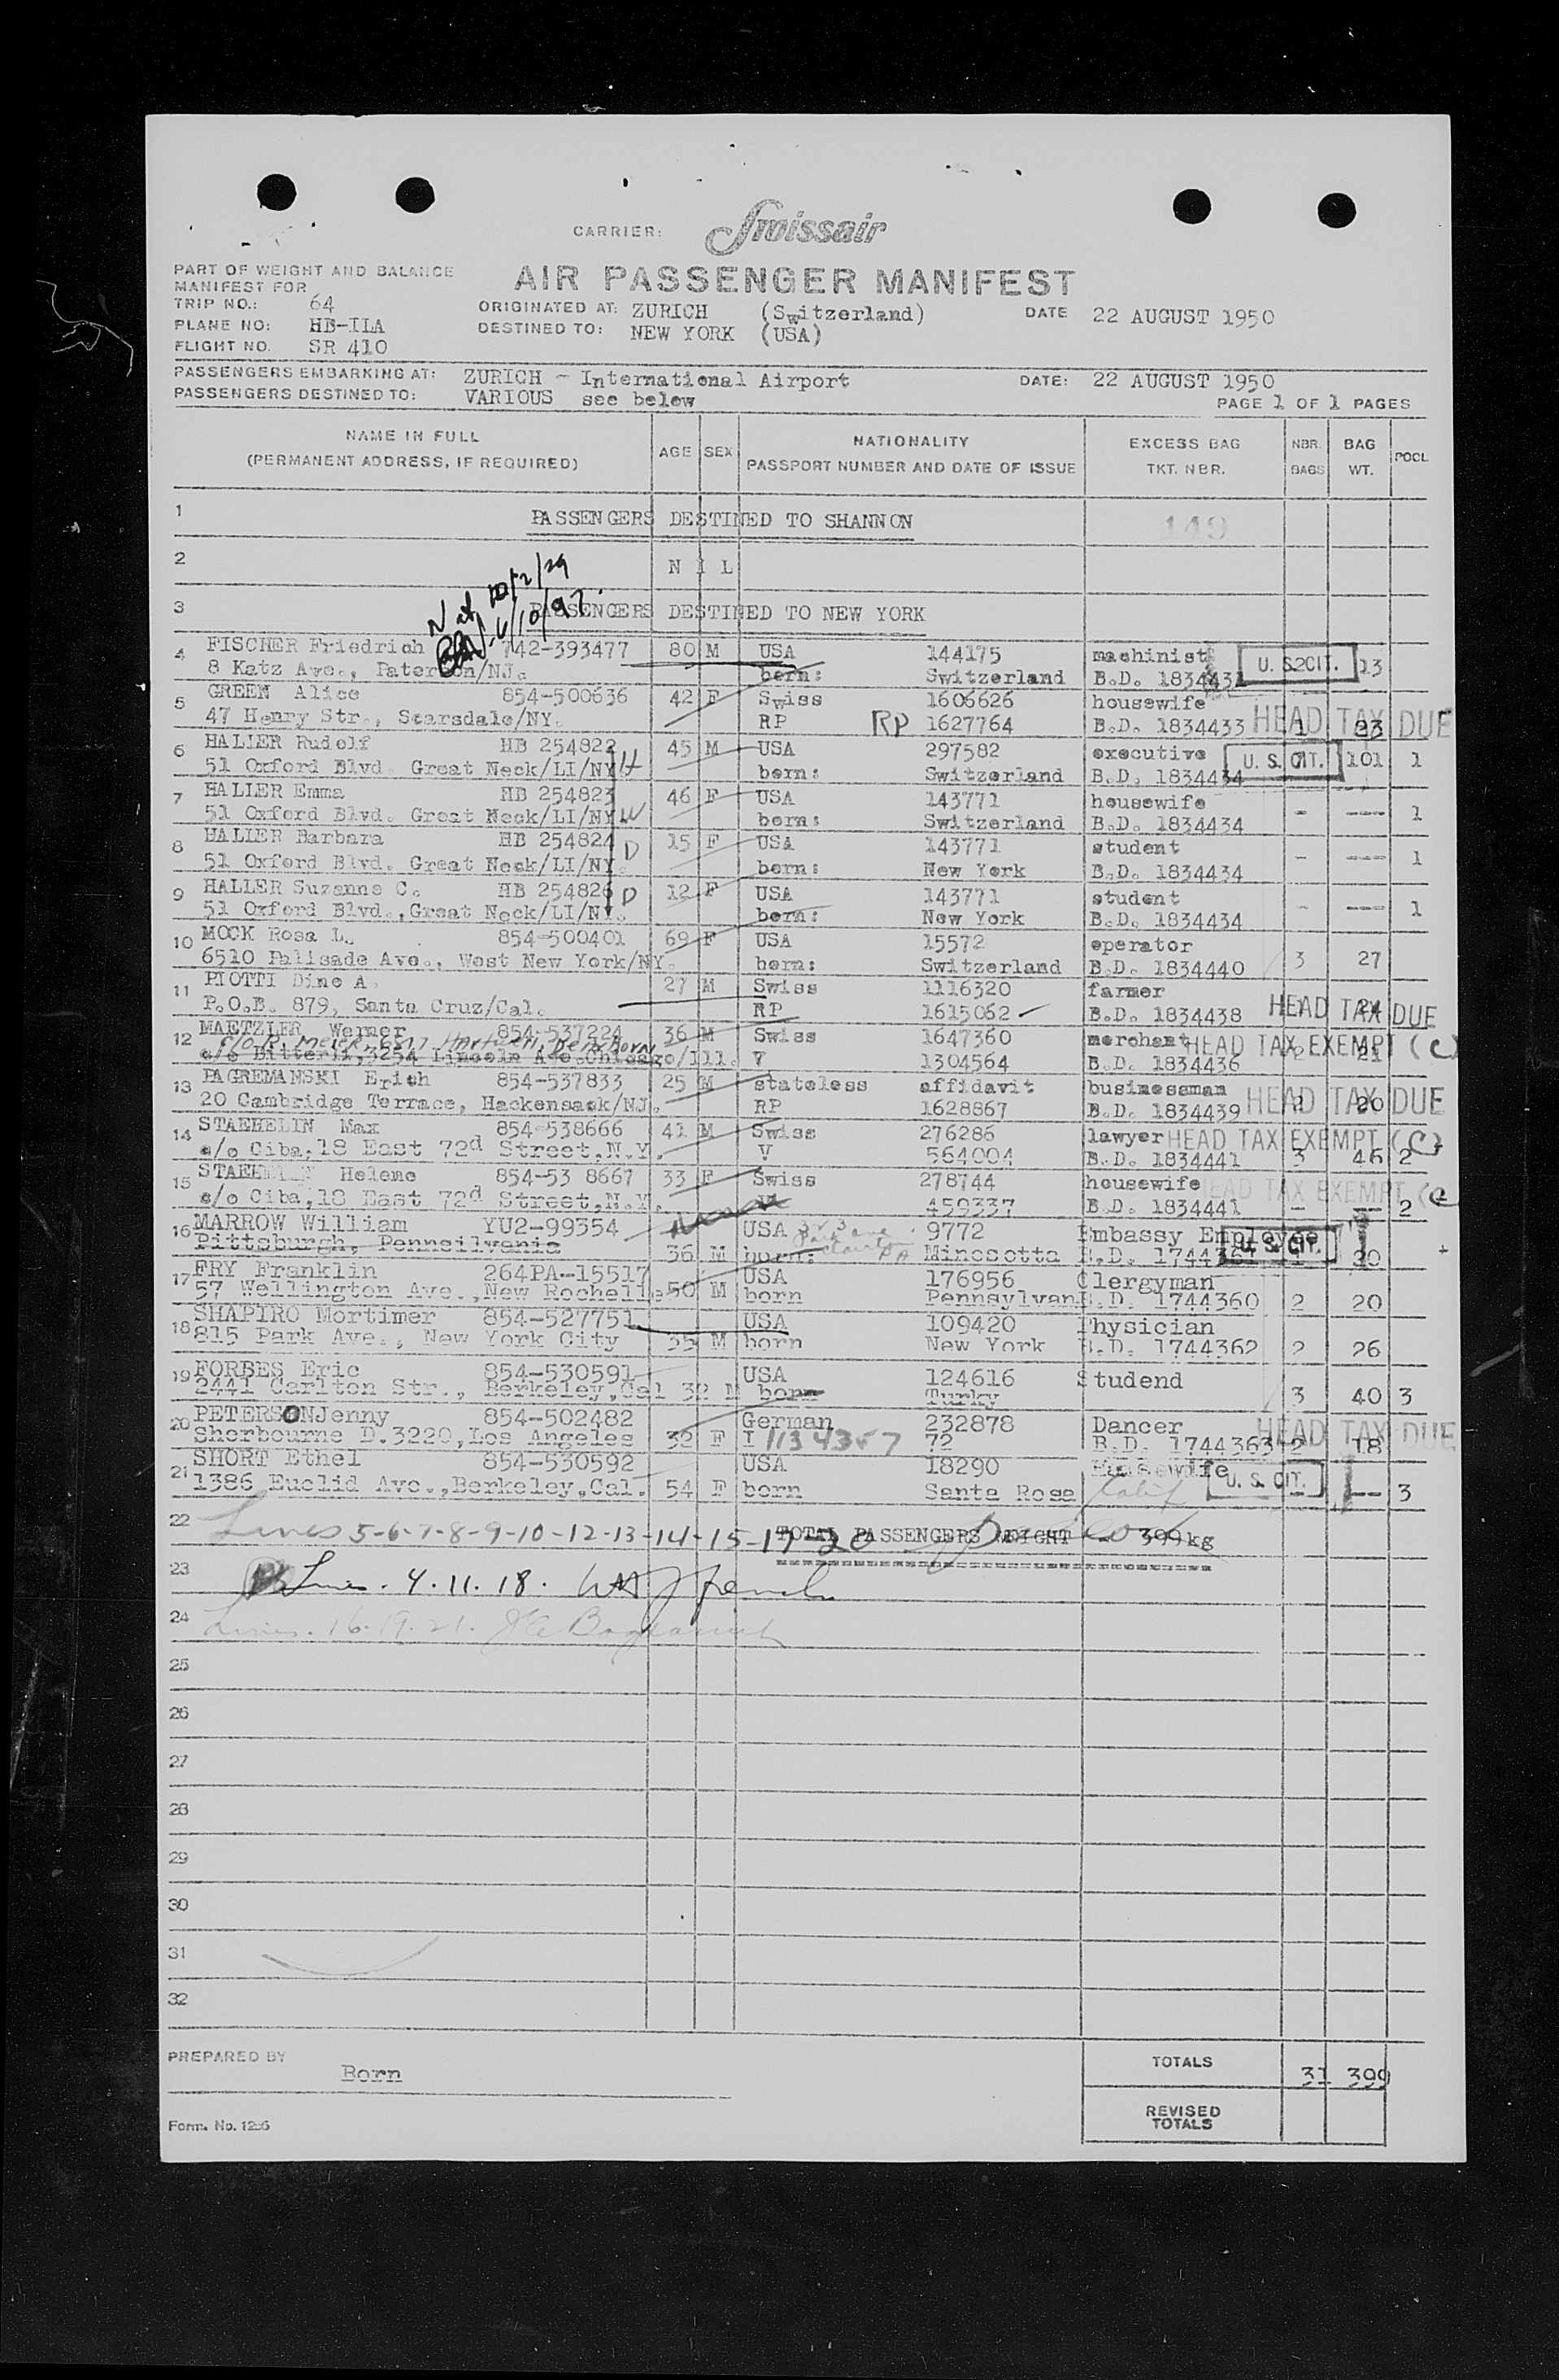 CARRIER: Swissair
PART OF WEIGHT AND BALANCE
MANIFEST FOR
AIR PASSENGER MANIFEST
TRIP NO.: 64
ORIGINATED AT: ZURICH (Switzerland) DATE 22 AUGUST 1950
PLANE NO: HB-ILA
DESTINED TO: NEW YORK (USA)
FLIGHT NO. SR 410
PASSENGERS EMBARKING AT: ZURICH - International Airport DATE: 22 AUGUST 1950
PASSENGERS DESTINED TO: VARIOUS see below
PAGE 1 OF 1 PAGES
NAME IN FULL AGE SEX NATIONALITY EXCESS BAG NBR. BAG POOL
(PERMANENT ADDRESS, IF REQUIRED) PASSPORT NUMBER AND DATE OF ISSUE TKT. NBR. BAGS WT.
1 PASSENGERS DESTINED TO SHANNON 149
2 N I L
Nat. 10/2/29
3 PASSENGERS DESTINED TO NEW YORK
6/10/97
4 FISCHER Friedrich 742-393477 80 M USA 144175 machinist U. S. CIT. 2 13
8 Katz Ave., Paterson/NJ. born: Switzerland B.D. 1834431
5 GREEN Alice 854-500636 42 F Swiss 1606626 housewife
47 Henry Str., Scarsdale/NY. RP RP 1627764 B.D. 1834433 HEAD TAX DUE 1 23
6 HALLER Rudolf HB 254822 45 M USA 297582 executive U. S. CIT. 7 101 1
51 Oxford Blvd. Great Neck/LI/NY H born: Switzerland B.D. 1834434
7 HALLER Emma HB 254823 46 F USA 143771 housewife
51 Oxford Blvd. Great Neck/LI/NY W born: Switzerland B.D. 1834434 - --- 1
8 HALLER Barbara HB 254824 15 F USA 143771 student
51 Oxford Blvd. Great Neck/LI/NY. D born: New York B.D. 1834434 - --- 1
9 HALLER Suzanne C. HB 254826 12 F USA 143771 student
51 Oxford Blvd.,Great Neck/LI/NY. D born: New York B.D. 1834434 - --- 1
10 MOCK Rosa L. 854-500401 69 F USA 15572 operator
6510 Palisade Ave., West New York/NY. born: Switzerland B.D. 1834440 3 27
11 PIOTTI Dino A. 27 M Swiss 1116320 farmer
P.O.B. 879, Santa Cruz/Cal. RP 1615062 B.D. 1834438 HEAD TAX DUE 24
12 MAETZLER Werner 854-537224 36 M Swiss 1647360 merchant HEAD TAX EXEMPT (C)
c/o R. Meier, Dearborn
c/o Bitterli,3254 Lincoln Ave.Chicago/Ill. V 1304564 B.D. 1834436 2 21
13 PAGREMANSKI Erich 854-537833 25 M stateless affidavit businessman
20 Cambridge Terrace, Hackensack/NJ. RP 1628867 B.D. 1834439 HEAD TAX DUE 2 20
14 STAEHELIN Max 854-538666 41 M Swiss 276286 lawyer HEAD TAX EXEMPT (C)
c/o Ciba,18 East 72d Street,N.Y. V 564004 B.D. 1834441 3 46 2
15 STAEHELIN Helene 854-53 8667 33 F Swiss 278744 housewife HEAD TAX EXEMPT (C
c/o Ciba,18 East 72d Street,N.Y. 459337 B.D. 1834441 - -- 2
16 MARROW William YU2-99354 USA 9772 Embassy Employee U. S. CIT.
Pittsburgh, Pennsilvania 36 M born: Minesotta B.D. 1744361 20
17 FRY Franklin 264PA-15517 USA 176956 Clergyman
57 Wellington Ave.,New Rochelle 50 M born Pennsylvan B.D. 1744360 2 20
18 SHAPIRO Mortimer 854-527751 USA 109420 Physician
815 Park Ave., New York City 55 M born New York B.D. 1744362 2 26
19 FORBES Eric 854-530591 USA 124616 Studend
2441 Carlton Str., Berkeley,Cal 32 M born Turky 3 40 3
20 PETERSON Jenny 854-502482 German 232878 Dancer
Sherbourne D.3220,Los Angeles 32 F I 1134357 72 B.D. 1744363 HEAD TAX DUE 2 18
21 SHORT Ethel 854-530592 USA 18290 Housewife U. S. CIT.
1386 Euclid Ave.,Berkeley,Cal. 54 F born Santa Rosa Calif -- 3
22 Lines 5-6-7-8-9-10-12-13-14-15-17-20 TOTAL PASSENGERS WEIGHT - 399kg
23 Lines. 4. 11. 18.
24 Lines. 16. 19. 21.
25
26
27
28
29
30
31
32
PREPARED BY Born
TOTALS 31 399
REVISED
TOTALS
Form. No. 1256